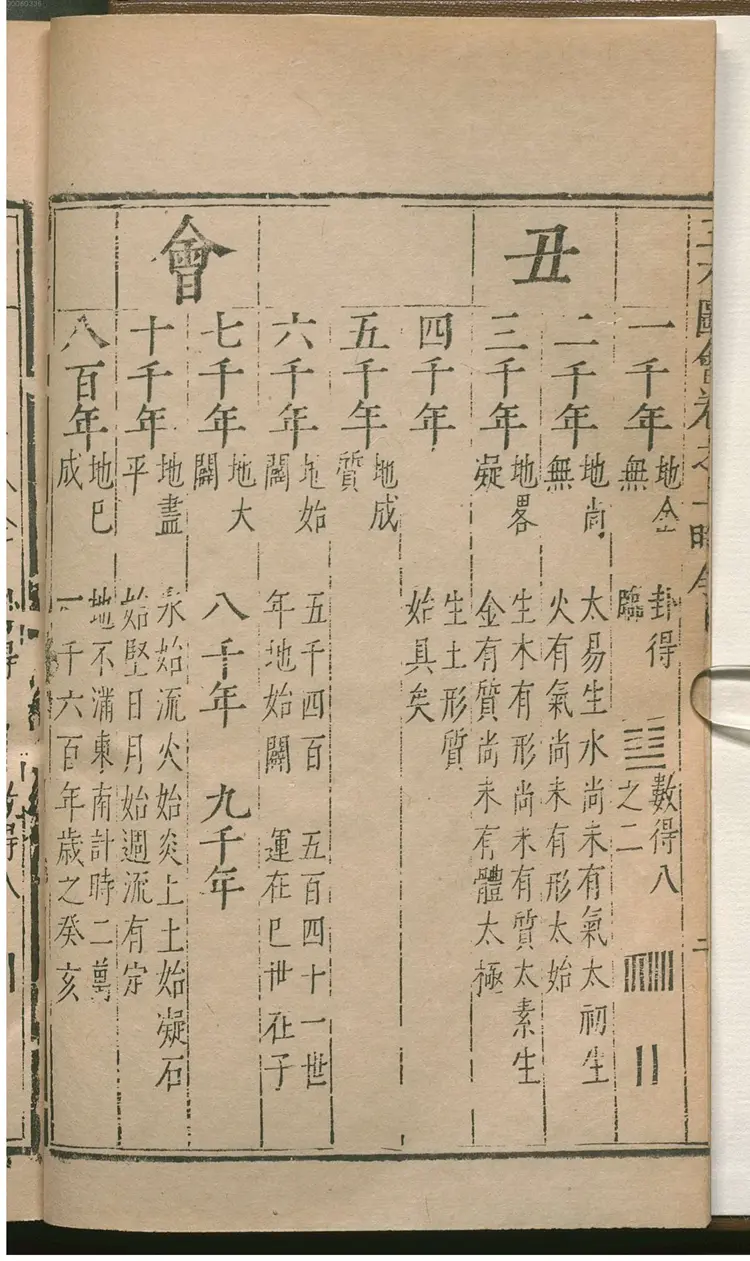 丑會
一千年
地全
無
卦得
臨
數得八
之二
二千年
地尚
無
太易生水尚未有氣太初生
火有氣尚未有形太始
三千年
地畧
凝
生木有形尚未有質太素生
金有質尚未有體太極
四千年
生土形質
始具矣
五千年
地成
質
六千年
地始
闢
五千四百
年地始闢
五百四十一世
運在巳世在子
七千年
地大
闢
八千年
九千年
十千年
地盡
平
水始流火始炎上土始凝石
始堅日月始週流有定
八百年
地已
成
地不滿東南計時二萬
一千六百年歲之癸亥